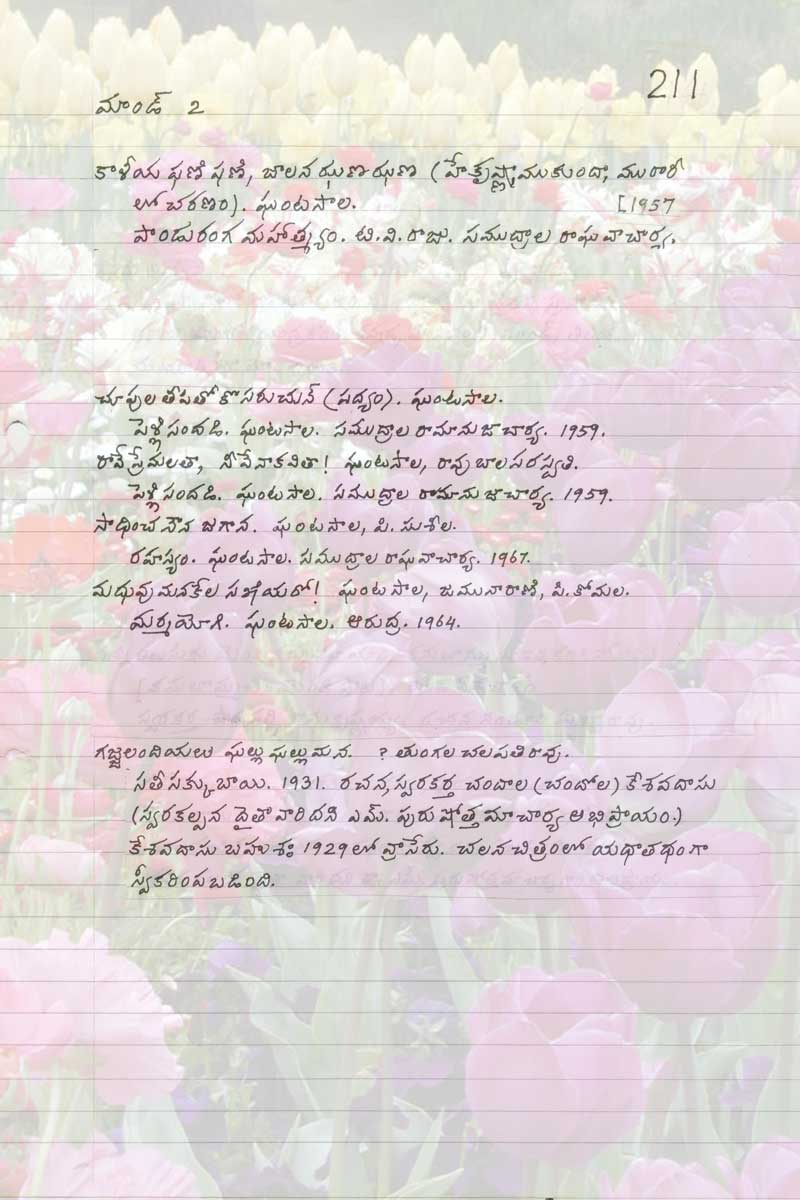 211
మాండ్ 2
కాళీయ ఫణి ఫణి, జాలన ఝణఝణ (హేకృష్ణా ముకుందా, మురారీ
లో చరణం). ఘంటసాల. [1957
పాండురంగ మహాత్మ్యం. టి.వి.రాజు. సముద్రాల రాఘవాచార్య.
చూపుల తీపితో కొసరుచున్ (పద్యం). ఘంటసాల.
పెళ్లిసందడి. ఘంటసాల. సముద్రాల రామానుజాచార్య. 1959.
రావే ప్రేమలతా, నీవేనాకవితా! ఘంటసాల, రావు బాలసరస్వతి.
పెళ్లిసందడి. ఘంటసాల. సముద్రాల రామానుజాచార్య. 1959.
సాధించనౌన జగాన. ఘంటసాల, పి. సుశీల.
రహస్యం. ఘంటసాల. సముద్రాల రాఘవాచార్య. 1967.
మధువు మనకేల సఖియరో! ఘంటసాల, జమునారాణి, పి.కోమల.
మర్మయోగి. ఘంటసాల. ఆరుద్ర. 1964.
గజ్జలందియలు ఘల్లు ఘల్లుమన. ? తుంగల చలపతిరావు.
సతీసక్కుబాయి. 1931. రచన, స్వరకర్త చందాల (చందోల) కేశవదాసు
(స్వరకల్పన దైతావారిదని ఎమ్. పురుషోత్తమాచార్య అభిప్రాయం.)
కేశవదాసు బహుశః 1929లో వ్రాసేరు. చలనచిత్రంలో యథాతథంగా
స్వీకరింపబడింది.